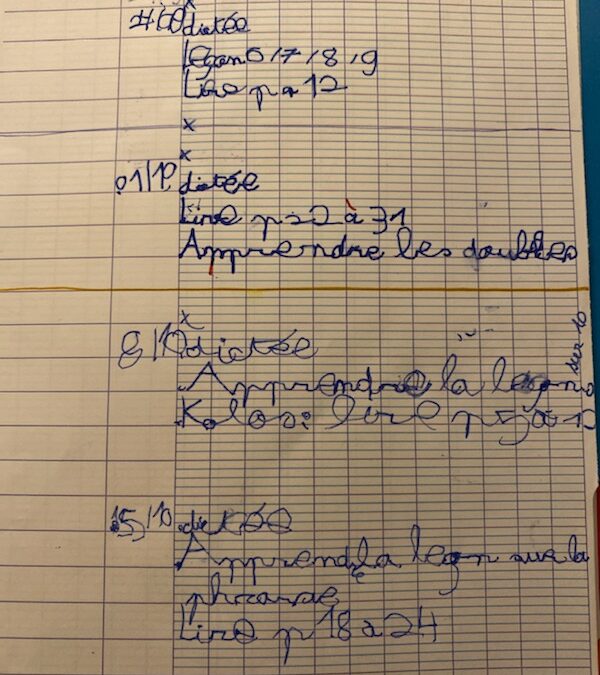 dictée
leçon 6 / 7 / 8 / 9
Lire p a 12
x
x
01/10 dictée
Lire p 22 à 31
Apprendre les doubles
x
8/10 dictée
Apprendre la leçon sur 10
Kolos: lire p 5 à 10
15/10 dictée
Apprendre la leçon sur la
phrase
Lire p 18 à 24